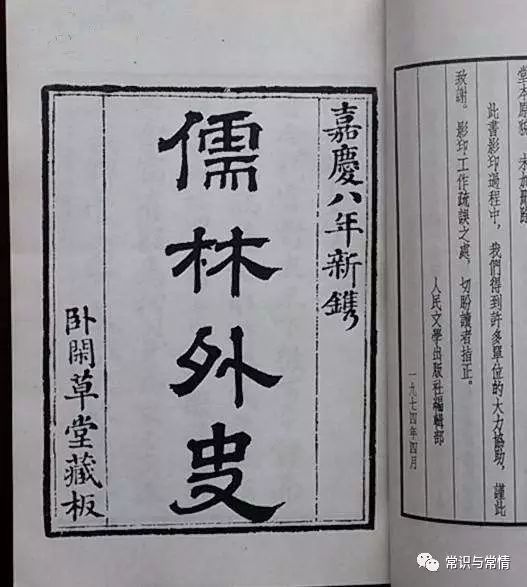 堂本原
此書影印過程中，我們得到許多單位的大力協助，謹此
致謝。影印工作疏誤之處，切盼讀者指正。
人民文學出版社編輯部
一九七四年四月
嘉慶八年新鐫
儒林外史
臥閑草堂藏板
常识与常情